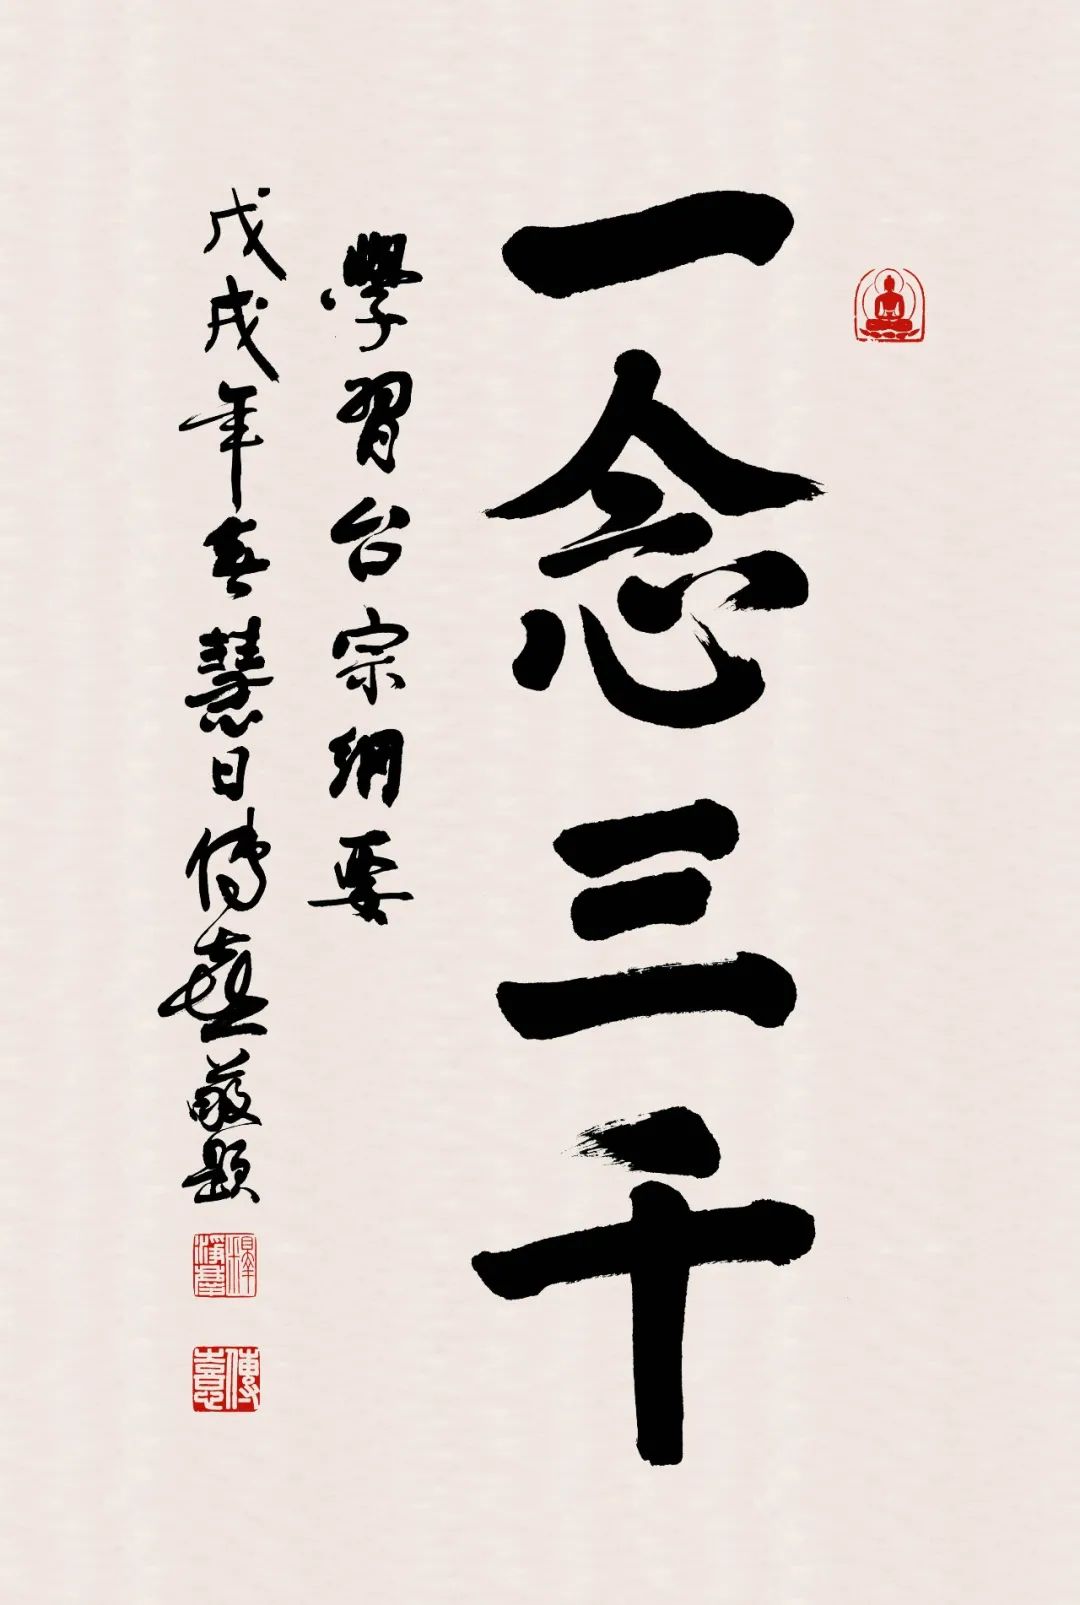 一念三千
學習台宗綱要
戊戌年春慧日傳喜敬題
傳喜